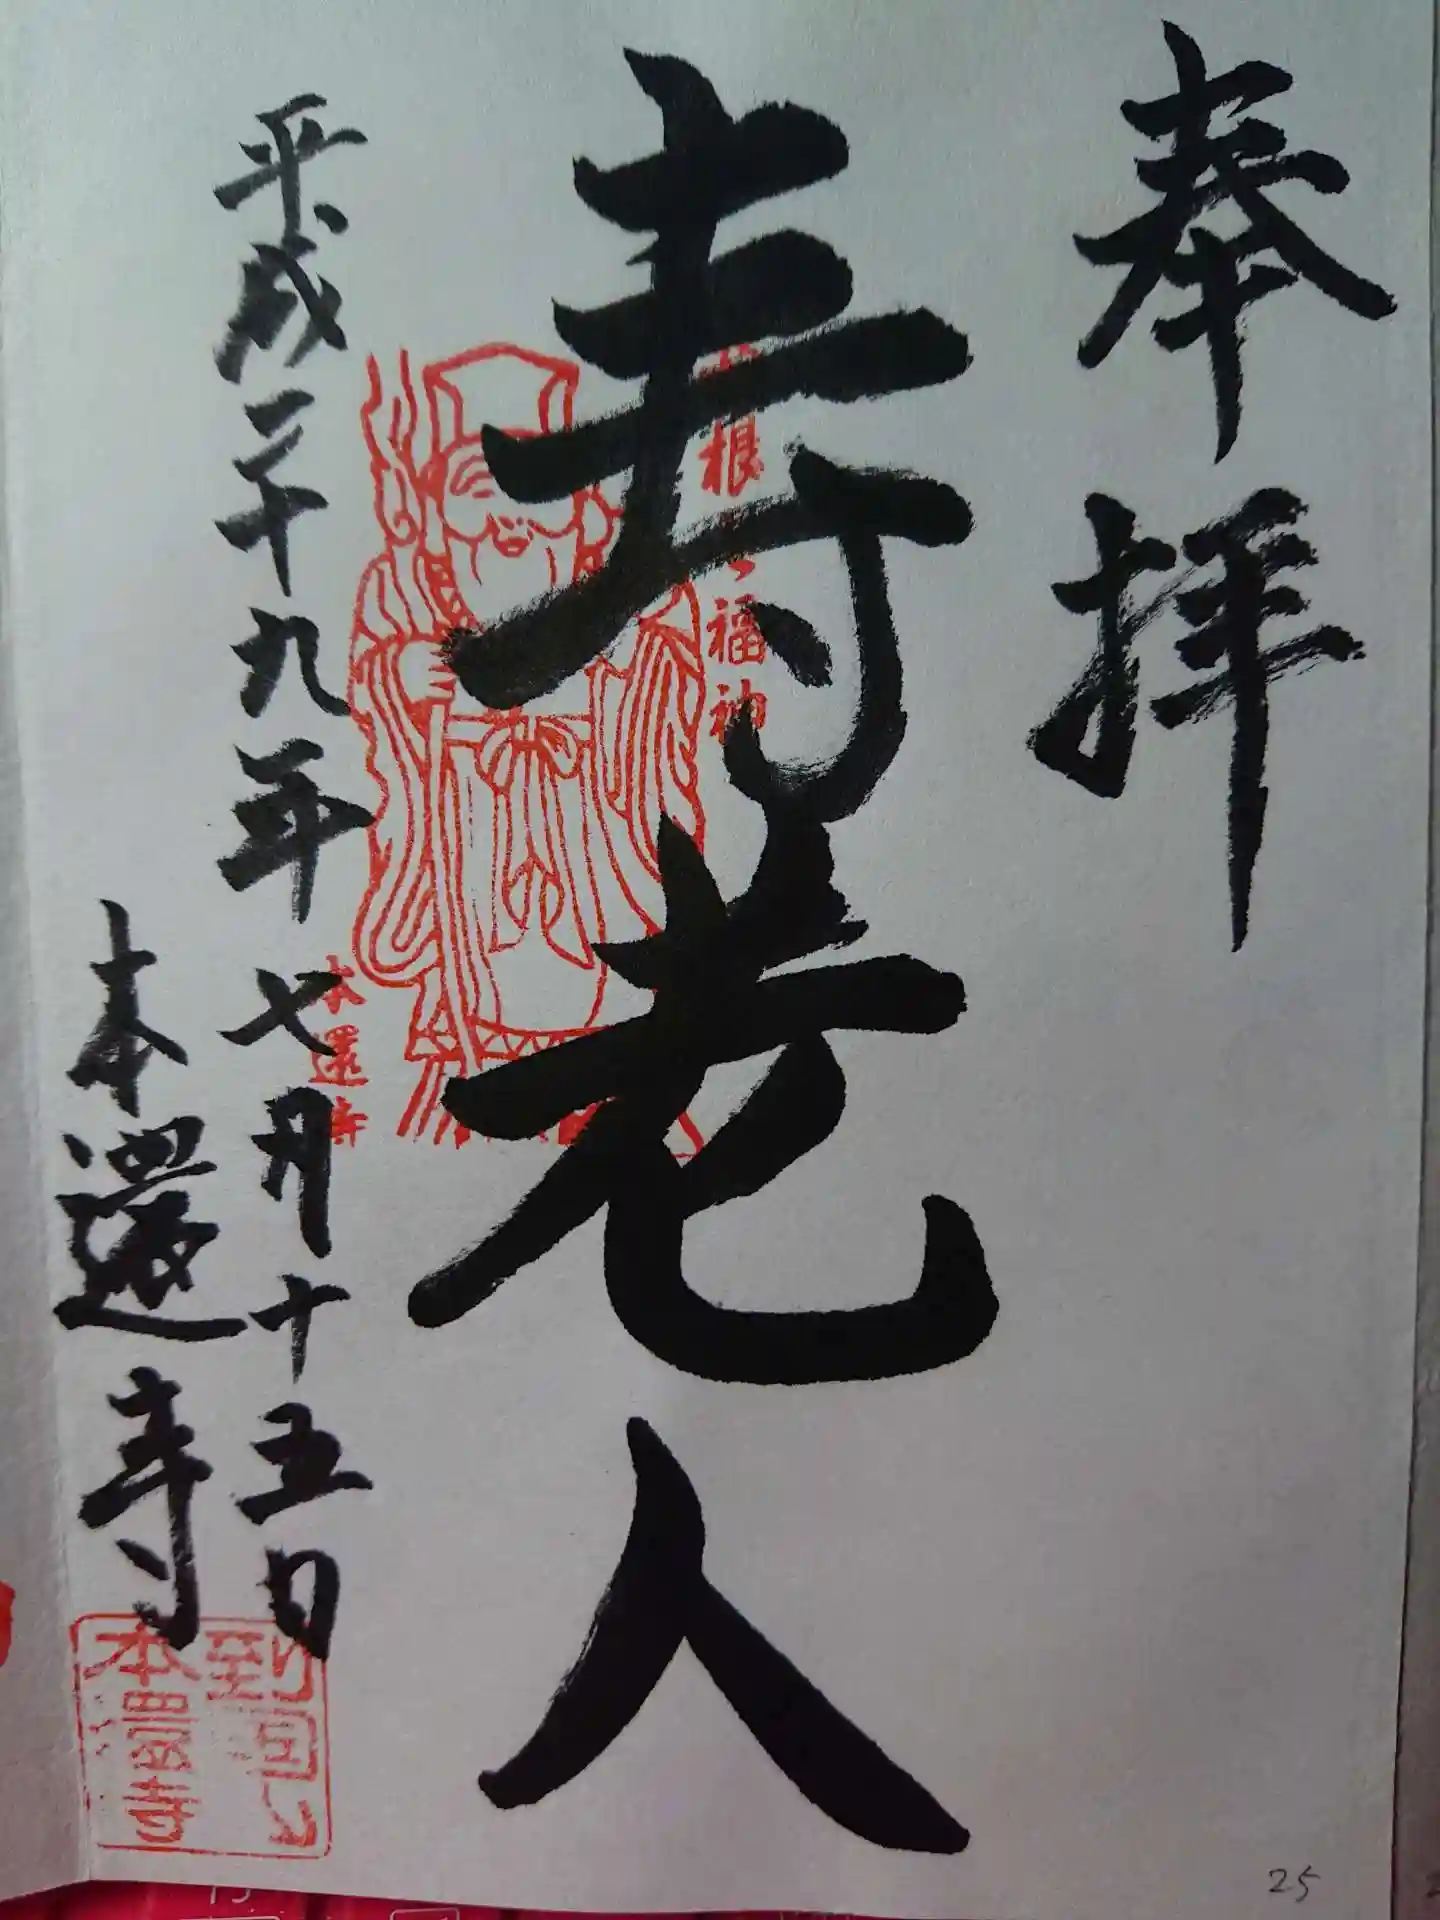 奉拝
根
福神
寿老人
本還寺
平成二十九年七月十五日
本還寺
到岸山
本還寺
25